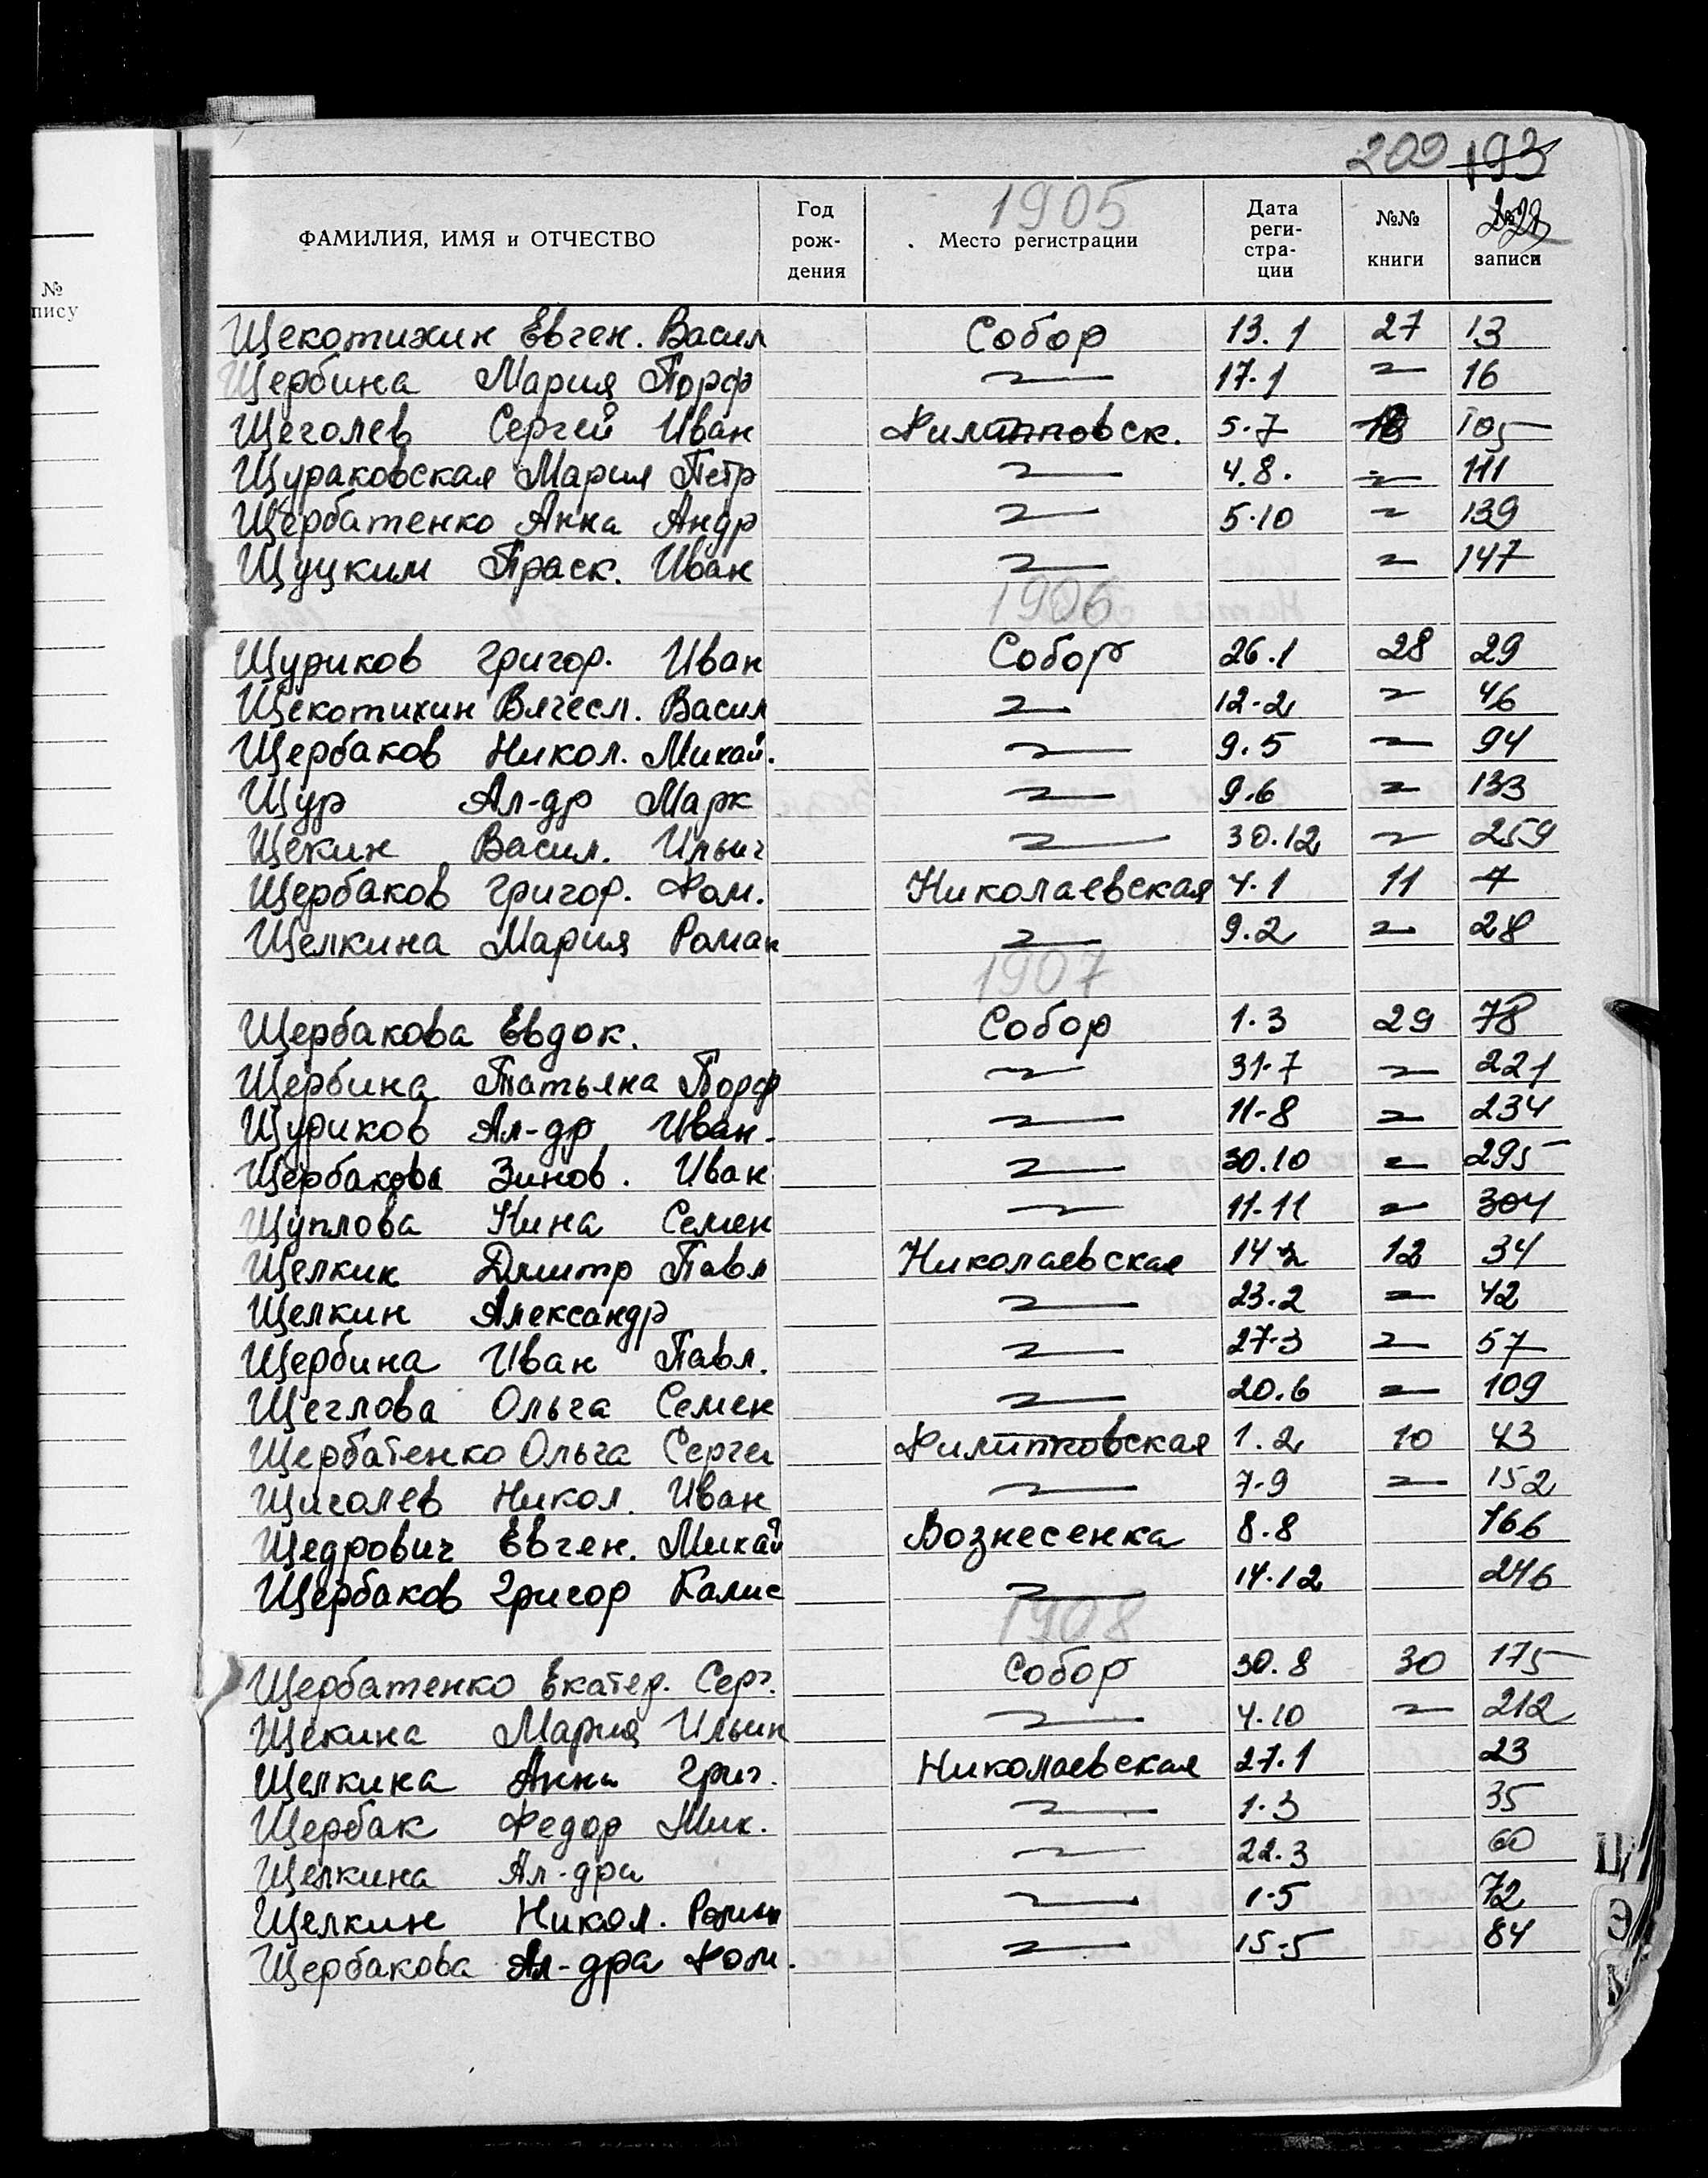 209 193
228
ФАМИЛИЯ, ИМЯ и ОТЧЕСТВО Год рож- дения 1905 Место регистрации Дата реги- стра- ции №№ книги № записи
№
пису
Щекотихин Евген. Васил Собор 13.1 27 13
Щербина Мария Порф 17.1 16
Щеголев Сергей Иван Филипповск. 5.7 105
Щураковская Мария Петр 4.8. 111
Щербатенко Анна Андр 5.10 139
Щуцким Праск. Иван 147
1906
Щуриков Григор. Иван Собор 26.1 28 29
Щекотихин Вячесл. Васил 12-2 46
Щербаков Никол. Михай. 9.5 94
Щур Ал-др Марк 9.6 133
Щекин Васил. Ильич 30.12 259
Щербаков Григор. Фом. Николаевская 4.1 11 7
Щелкина Мария Роман 9.2 28
1907
Щербакова Евдок. Собор 1.3 29 78
Щербина Татьяна Порф 31-7 221
Щуриков Ал-др Иван. 11-8 234
Щербакова Зинов. Иван 30.10 295
Щуплова Нина Семен 11-11 304
Щелкин Дмитр Павл Николаевская 14-2 12 34
Щелкин Александр 23.2 42
Щербина Иван Павл. 27-3 57
Щеглова Ольга Семен 20.6 109
Щербатенко Ольга Серген Филипповская 1.2 10 43
Щиголев Никол. Иван 7-9 152
Щедрович Евген. Михай Вознесенка 8.8 166
Щербаков Григор Калис 14.12 246
1908
Щербатенко Екатер. Серг. Собор 30.8 30 175
Щекина Мария Ильин 4.10 212
Щелкина Анна Григ. Николаевская 27.1 23
Щербак Федор Мих. 1.3 35
Щелкина Ал-дра 22.3 60
Щелкин Никол. Роман 1-5 72
Щербакова Ал-дра Фом. 15-5 84
Э